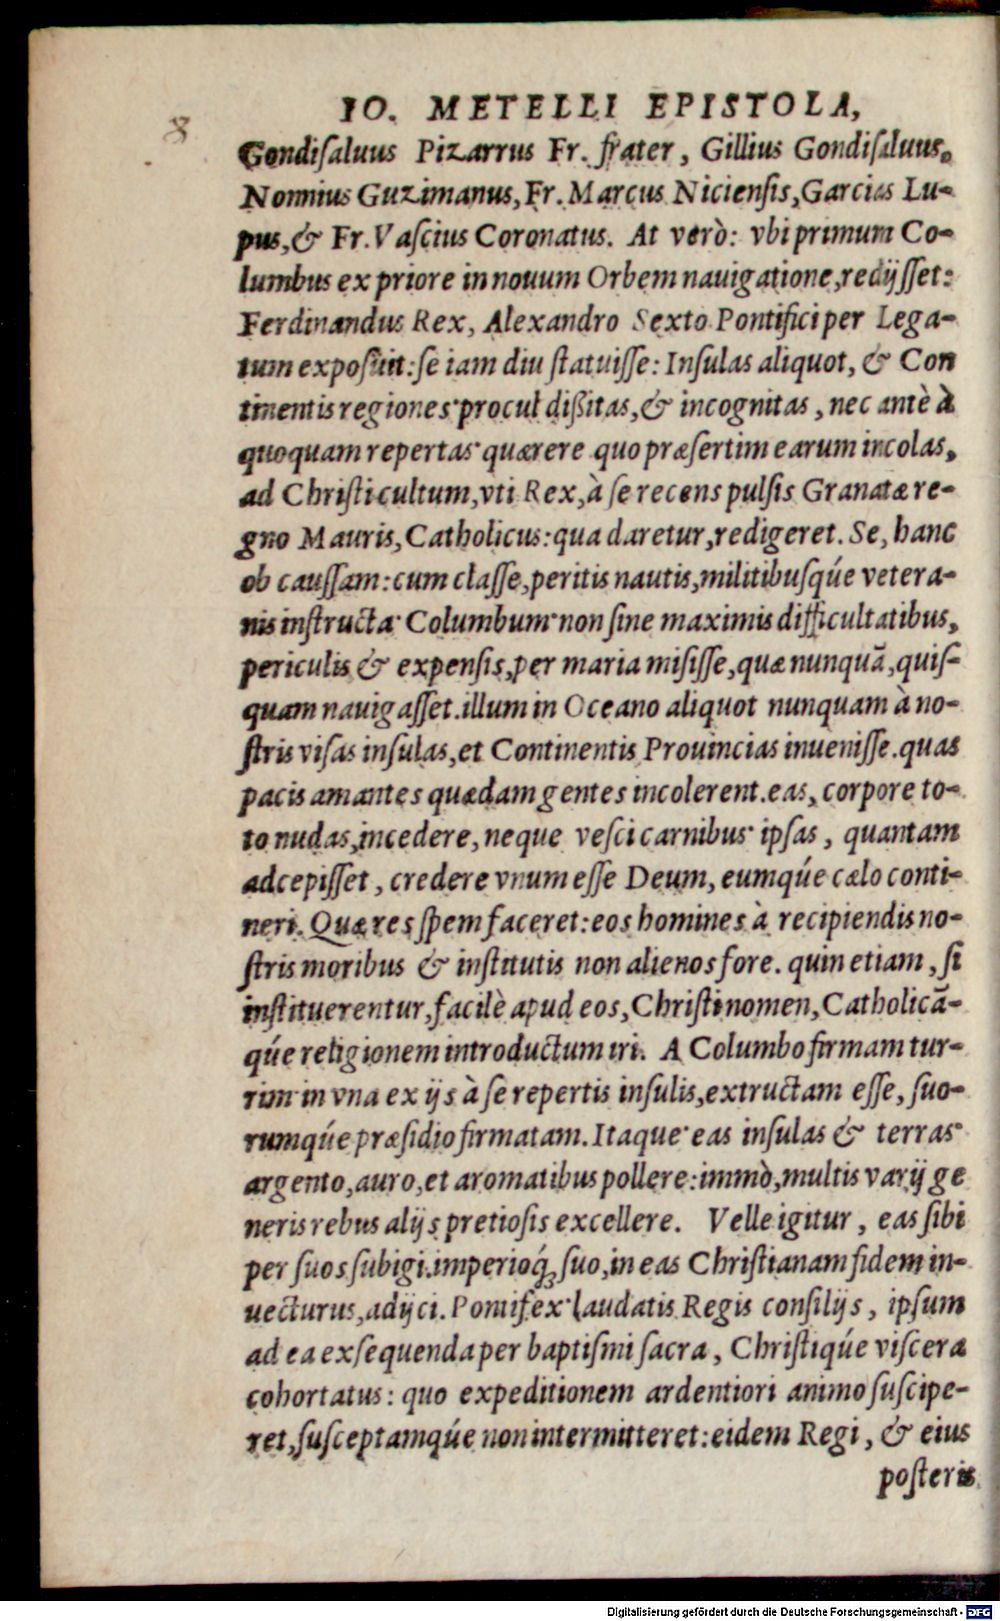 8
IO. METELLI EPISTOLA,
Gondiſaluus Pizarrus Fr. frater, Gillius Gondiſaluus,
Nonnius Guzimanus, Fr. Marcus Nicienſis, Garcias Lu-
pus, & Fr. Vaſcius Coronatus. At verò: vbi primum Co-
lumbus ex priore in nouum Orbem nauigatione, redijſſet:
Ferdinandus Rex, Alexandro Sexto Pontifici per Lega-
tum expoſuit: ſe iam diu ſtatuiſſe: Inſulas aliquot, & Con
tinentis regiones procul dißitas, & incognitas, nec antè à
quoquam repertas quærere quo præſertim earum incolas,
ad Chriſti cultum, vti Rex, à ſe recens pulſis Granatæ re-
gno Mauris, Catholicus: qua daretur, redigeret. Se, hanc
ob cauſſam: cum claſſe, peritis nautis, militibuſqúe vetera-
nis inſtructa Columbum non ſine maximis difficultatibus,
periculis & expenſis, per maria miſiſſe, quæ nunquā, quiſ-
quam nauigaſſet. illum in Oceano aliquot nunquam à no-
ſtris viſas inſulas, et Continentis Prouincias inueniſſe. quas
pacis amantes quædam gentes incolerent. eas, corpore to-
to nudas, incedere, neque veſci carnibus ipſas, quantam
adcepiſſet, credere vnum eſſe Deum, eumqúe cælo conti-
neri. Quæ res ſpem faceret: eos homines à recipiendis no-
ſtris moribus & inſtitutis non alienos fore. quin etiam, ſi
inſtituerentur, facilè apud eos, Chriſti nomen, Catholicā-
qúe religionem introductum iri. A Columbo firmam tur-
rim in vna ex ijs à ſe repertis inſulis, extructam eſſe, ſuo-
rumqúe præſidio firmatam. Itaque eas inſulas & terras
argento, auro, et aromatibus pollere: immò, multis varij ge
neris rebus alijs pretioſis excellere. Velle igitur, eas ſibi
per ſuos ſubigi. imperioq́ꝫ ſuo, in eas Chriſtianam fidem in-
uecturus, adijci. Pontifex laudatis Regis conſilijs, ipſum
ad ea exſequenda per baptiſmi ſacra, Chriſtiqúe viſcera
cohortatus: quo expeditionem ardentiori animo ſuſcipe-
ret, ſuſceptamqúe non intermitteret: eidem Regi, & eius
poſteris
Digitalisierung gefördert durch die Deutsche Forschungsgemeinschaft - DFG